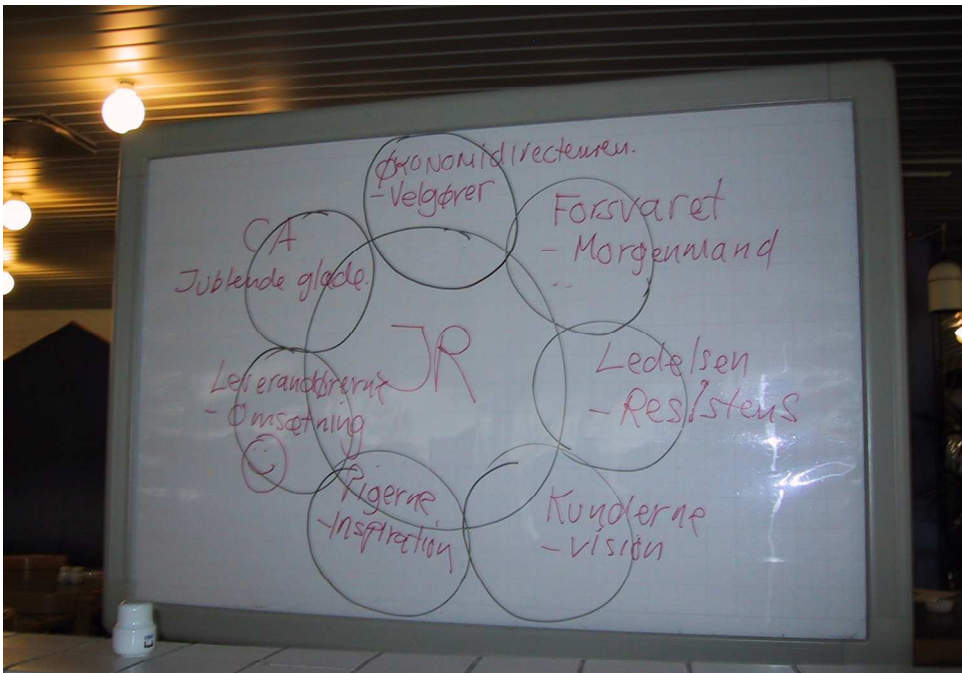 Økonomidirecteuren.
- Velgører
Forsvaret
- Morgenmand
CA
Jublende glade.
JR
Ledelsen
- Resistens
Leverandørerne
- Omsætning
Pigerne
- Inspiration
Kunderne
- vision